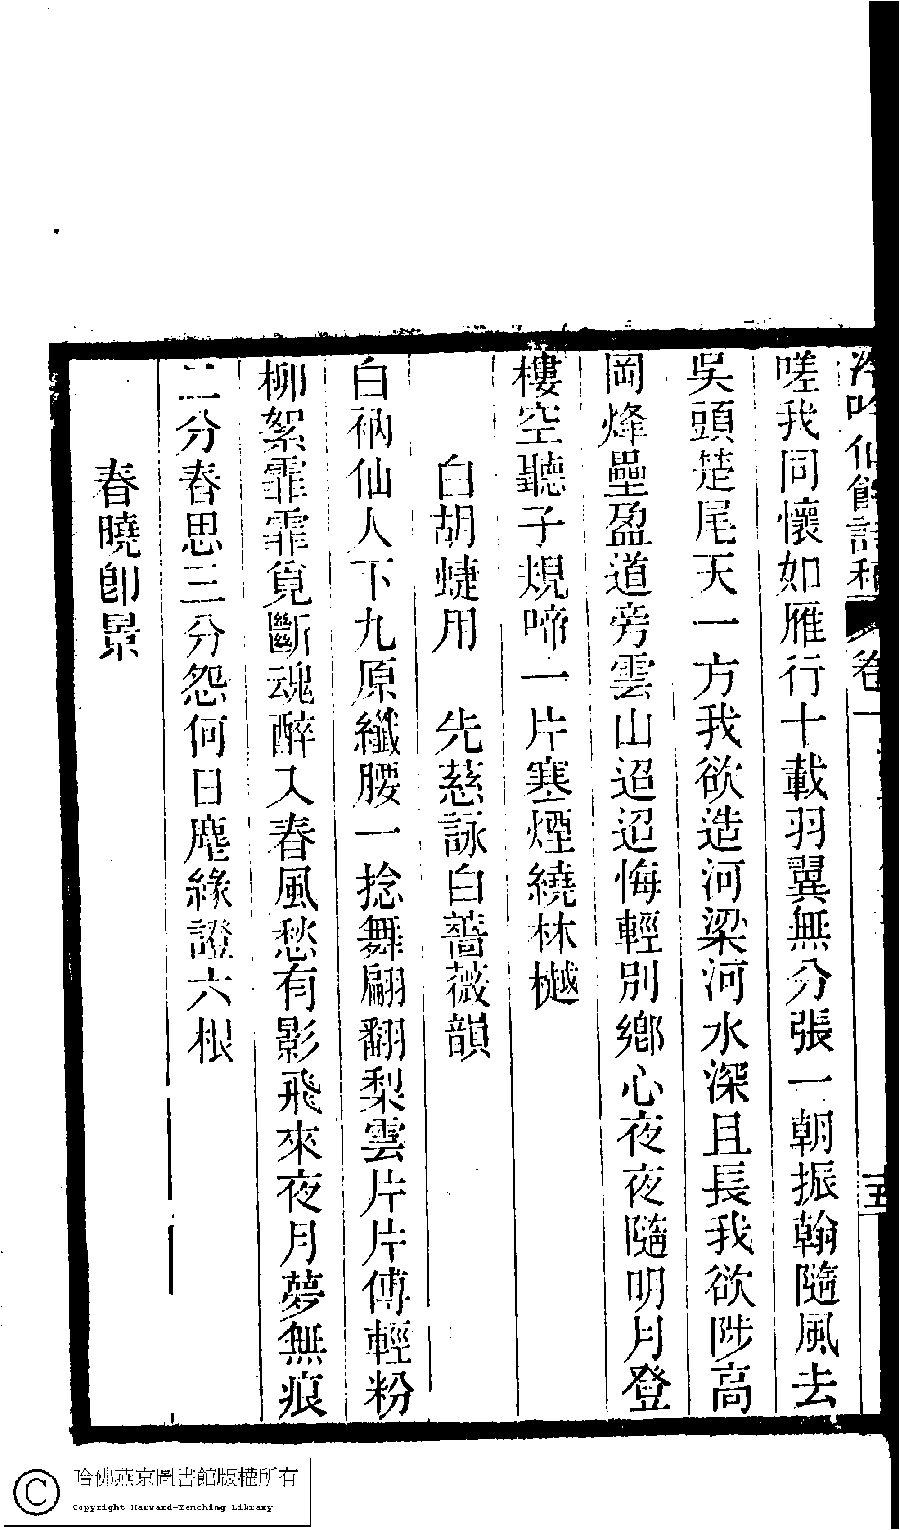 冷吟仙館詩稿 卷一 五
嗟我同懷如雁行十載羽翼無分張一朝振翰隨風去
吳頭楚尾天一方我欲造河梁河水深且長我欲陟高
岡烽壘盈道旁雲山迢迢悔輕別鄉心夜夜隨明月登
樓空聽子規啼一片寒煙繞林樾
白胡蜨用 先慈詠白薔薇韻
白衲仙人下九原纖腰一捻舞翩翻梨雲片片傅輕粉
柳絮霏霏覓斷魂醉入春風愁有影飛來夜月夢無痕
二分春思三分怨何日塵緣證六根
春曉卽景
哈佛燕京圖書館版權所有
Copyright Harvard-Yenching Library